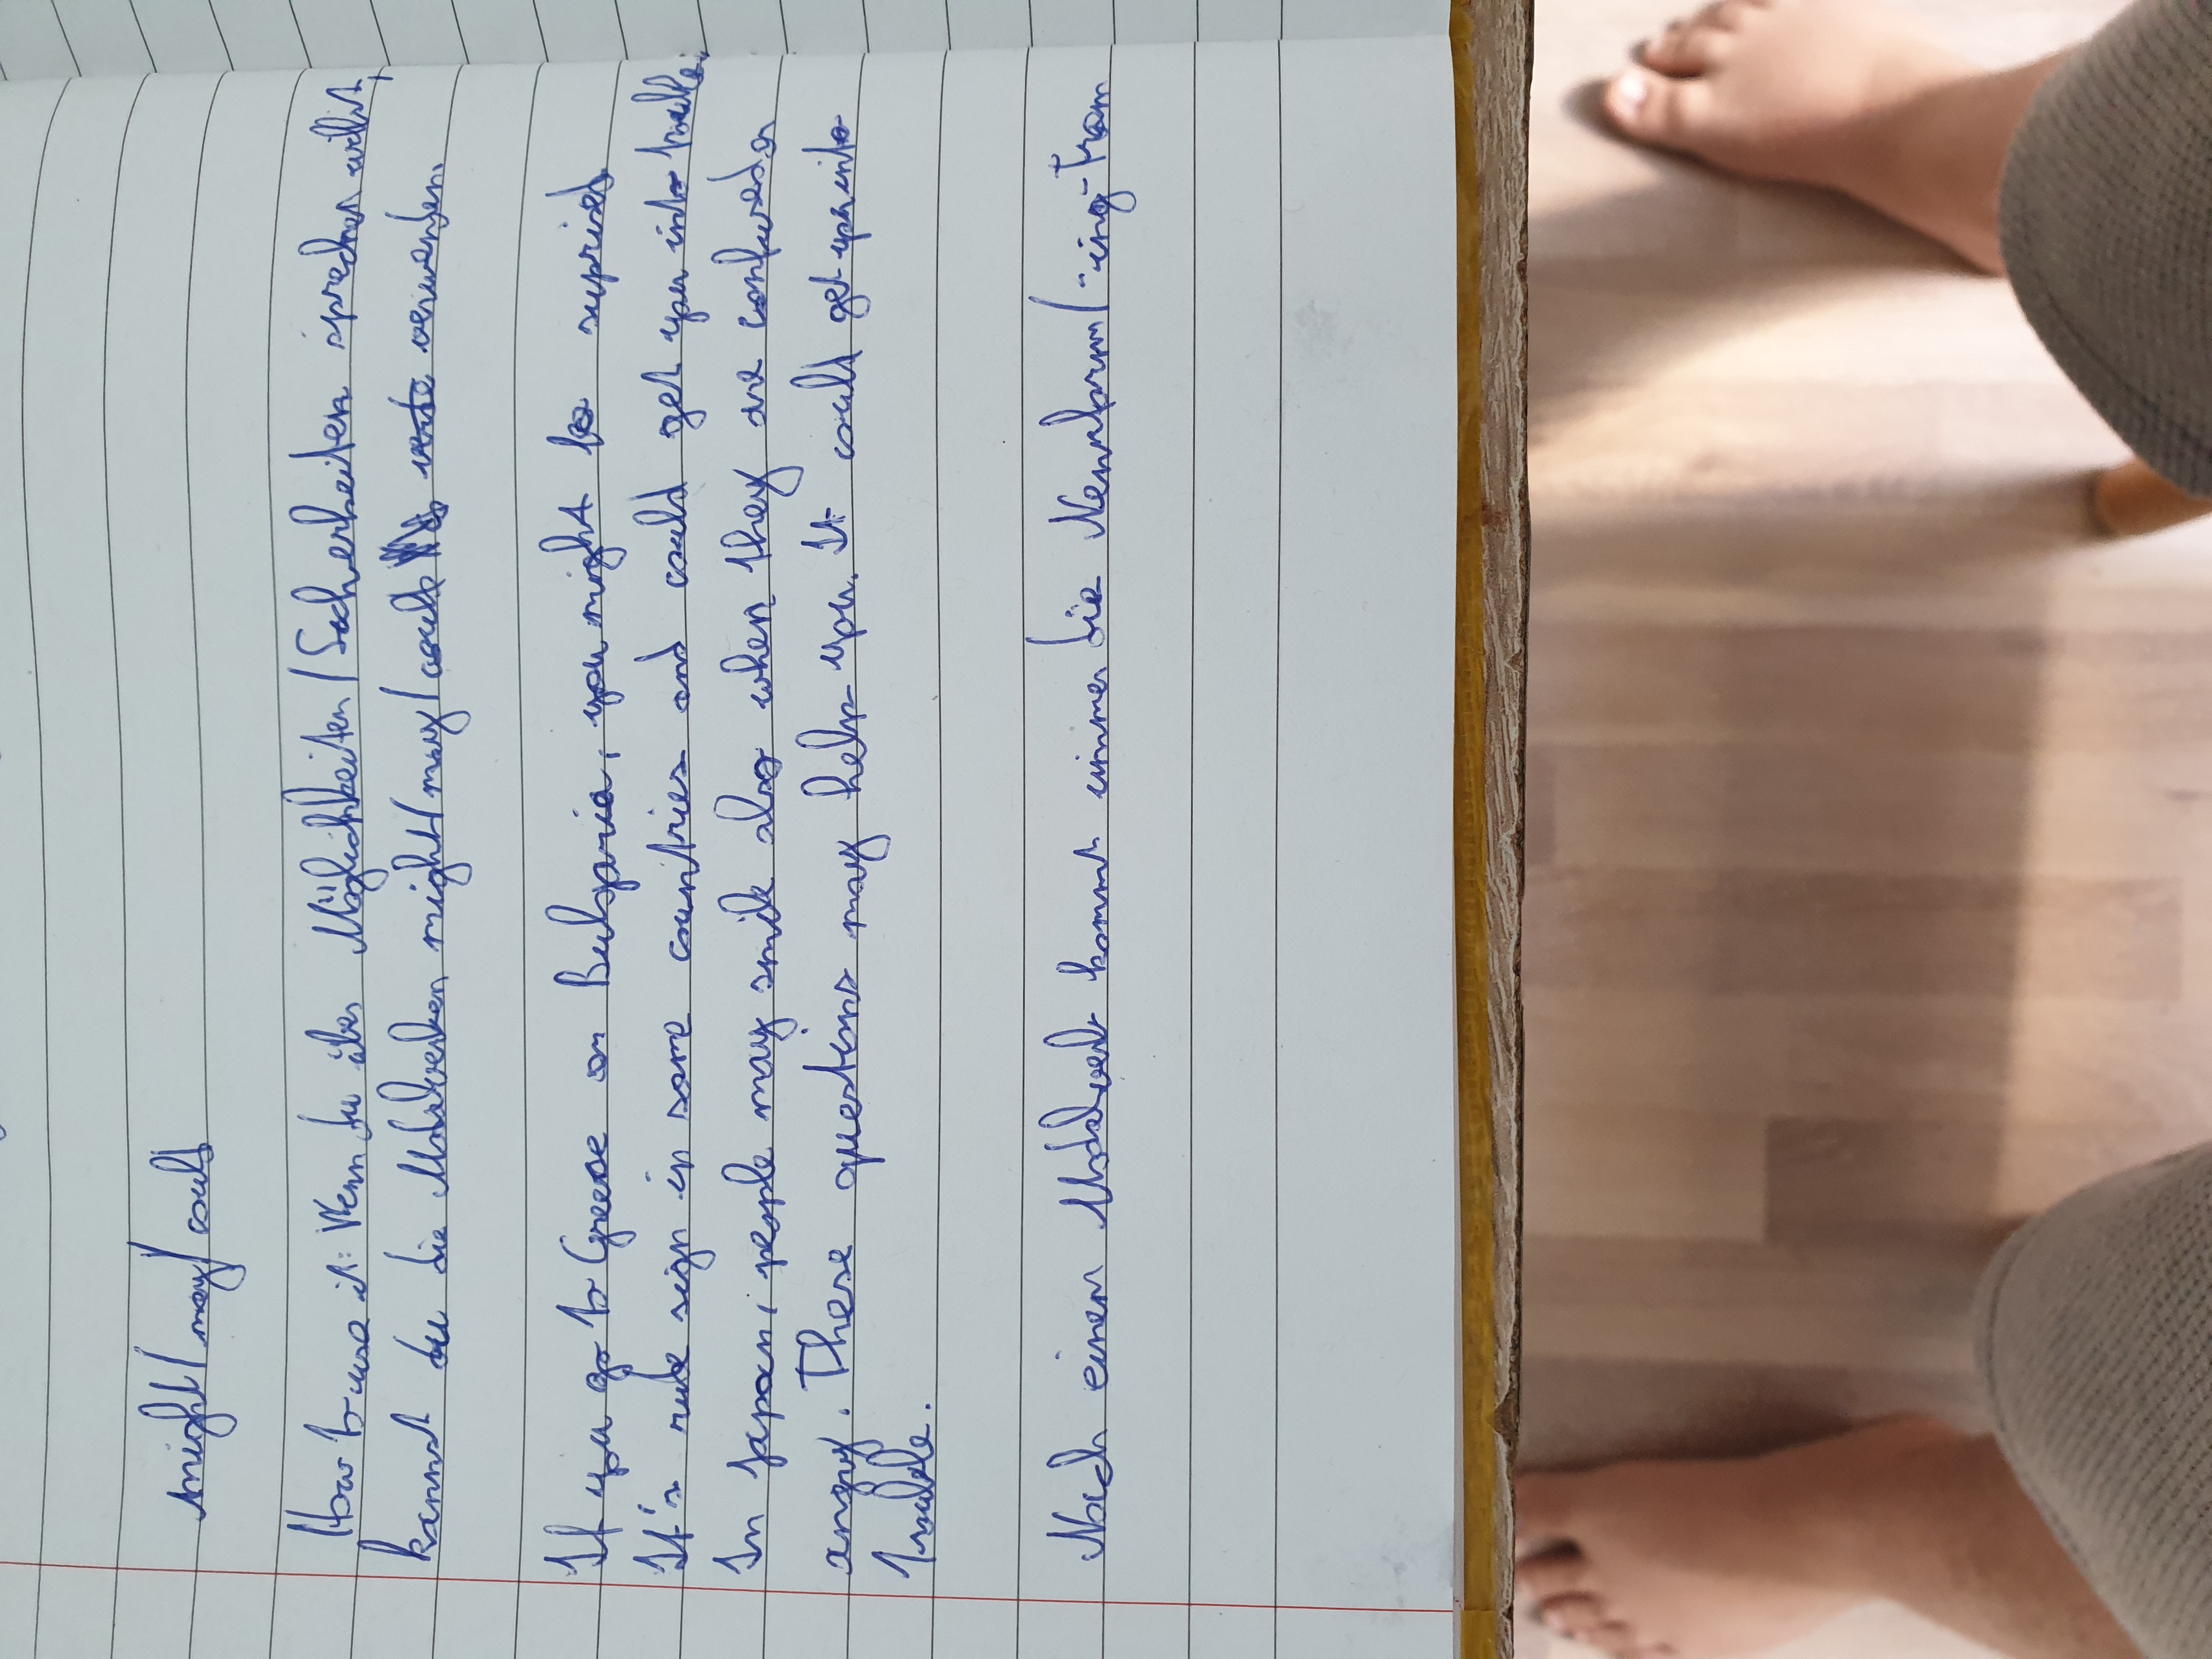 might / may / could
How to use it: Wenn du über Möglichkeiten / Sicherheiten sprechen willst,
kannst du die Modalverben might / may / could verwenden.
If you go to Greece or Bulgaria, you might be suprised.
It's rude sign in some countries and could get you into trouble.
In Japan, people may smile also when they are confused or
angry. These questions may help you. It could get you into
trouble.
Nach einem Modalverb kommt immer die Nennform / -ing-Form